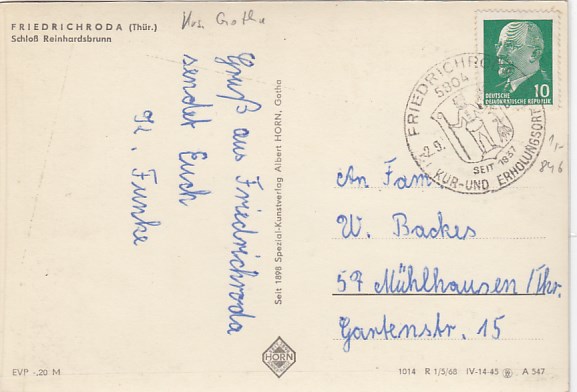 FRIEDRICHRODA (Thür.)
Schloß Reinhardsbrunn
Krs. Gotha
Gruß aus Friedrichroda
sendet Euch
H. Funke
Seit 1898 Spezial-Kunstverlag Albert HORN, Gotha
HORN
EVP -,20 M
10
DEUTSCHE
DEMOKRATISCHE REPUBLIK
5804 FRIEDRICHRODA
-2.9.
SEIT 1837
KUR-UND ERHOLUNGSORT
1,-
846
An Fam.
W. Backes
57 Mühlhausen /Thr.
Gartenstr. 15
1014 R 1/5/68 IV-14-45 A 547